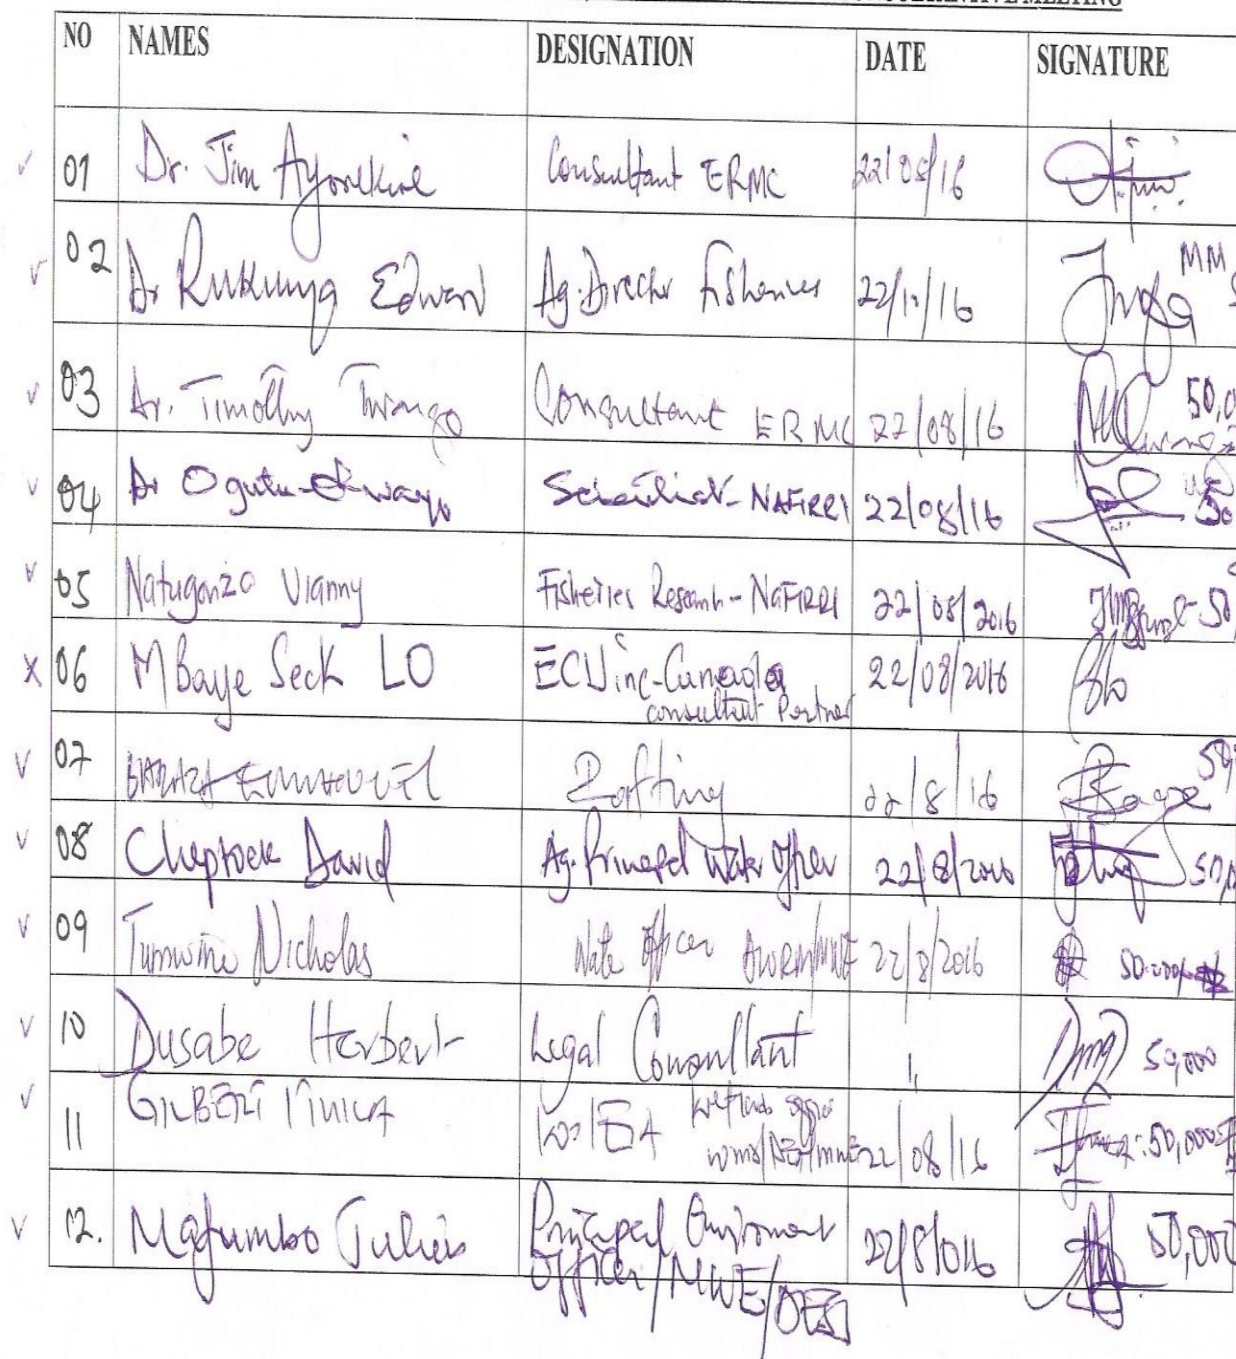 MEETING
NO NAMES DESIGNATION DATE SIGNATURE
01 Dr. Jim Ayorekire Consultant ERMC 22/08/16
02 Dr Rukunya Edward Ag. Director Fisheries 22/10/16 MM
03 Dr. Timothy Twongo Consultant ERMC 22/08/16 50,0
04 Dr Ogutu-Ohwayo Scientist-NAFIRRI 22/08/16 50
05 Natugonza Vianny Fisheries Research-NAFIRRI 22/08/2016 50
06 M Baye Seck LO ECU inc-Canada 22/08/2016
consultant Partner
07 Rafting 22/8/16 50,
08 David Ag. Principal Water Officer 22/8/2016 50,0
09 Tumwine Nicholas Water Officer DWRM/MWE 22/8/2016
10 Dusabe Herbert Legal Consultant ,, 50,000
11 GILBERT Wetlands officer
22/08/16 50,000
12. Mafumbo Julius Principal Environment 22/8/016 50,000
Officer/MWE/DESS